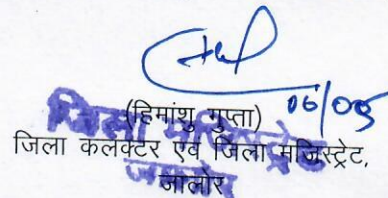 06/05
(हिमांशु गुप्ता)
जिला कलेक्टर एवं जिला मजिस्ट्रेट,
जालोर
जिला मजिस्ट्रेट
जालोर